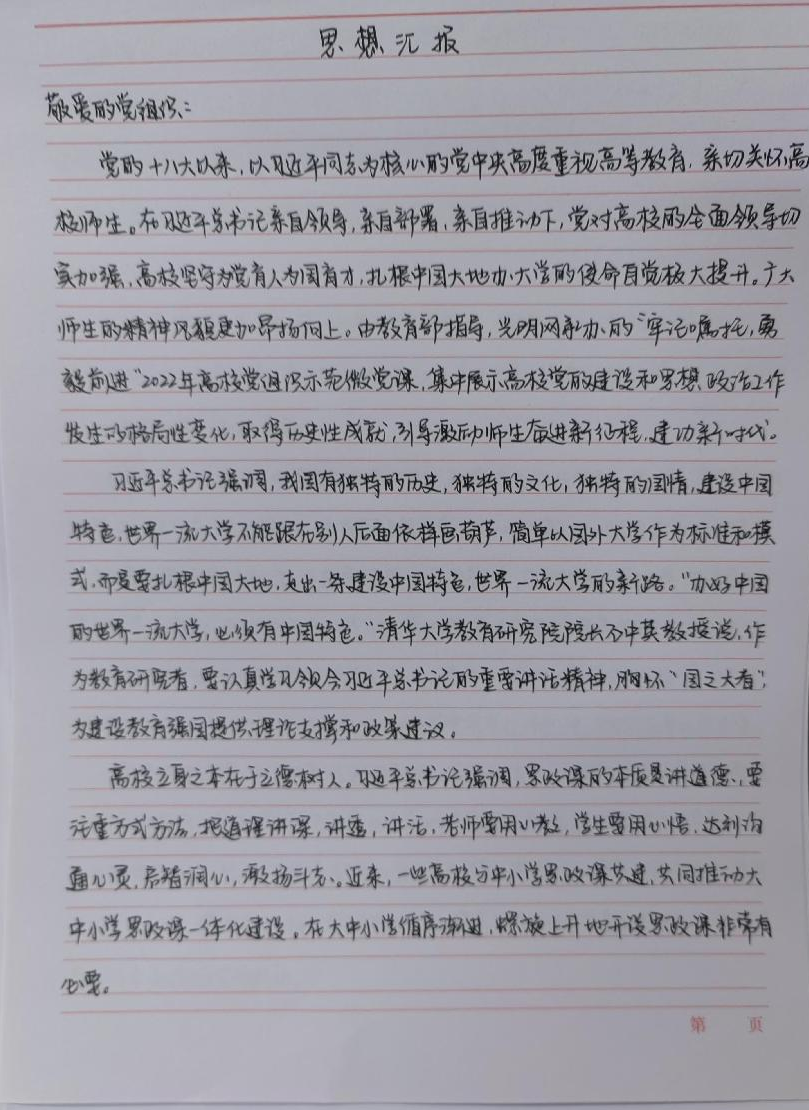 思想汇报
敬爱的党组织：
党的十八大以来，以习近平同志为核心的党中央高度重视高等教育，亲切关怀高
校师生。在习近平总书记亲自领导，亲自部署，亲自推动下，党对高校的全面领导切
实加强，高校坚守为党育人为国育才，扎根中国大地办大学的使命自觉极大提升。广大
师生的精神风貌更加昂扬向上。由教育部指导，光明网承办的“牢记嘱托，勇
毅前进”2022年高校党组织示范微党课，集中展示高校党的建设和思想政治工作
发生的格局性变化，取得历史性成就，引导激励师生奋进新征程，建功新时代。
习近平总书记强调，我国有独特的历史，独特的文化，独特的国情，建设中国
特色，世界一流大学不能跟在别人后面依样画葫芦，简单以国外大学作为标准和模
式，而是要扎根中国大地，走出一条建设中国特色，世界一流大学的新路。“办好中国
的世界一流大学，必须有中国特色。”清华大学教育研究院院长石中英教授说，作
为教育研究者，要认真学习领会习近平总书记的重要讲话精神，胸怀“国之大者”，
为建设教育强国提供理论支撑和政策建议。
高校立身之本在于立德树人。习近平总书记强调，思政课的本质是讲道德，要
注重方式方法，把道理讲深，讲透，讲活，老师要用心教，学生要用心悟，达到沟
通心灵，启智润心，激扬斗志。近来，一些高校与中小学思政课共建，共同推动大
中小学思政课一体化建设。在大中小学循序渐进，螺旋上升地开设思政课非常有
必要。
第 页